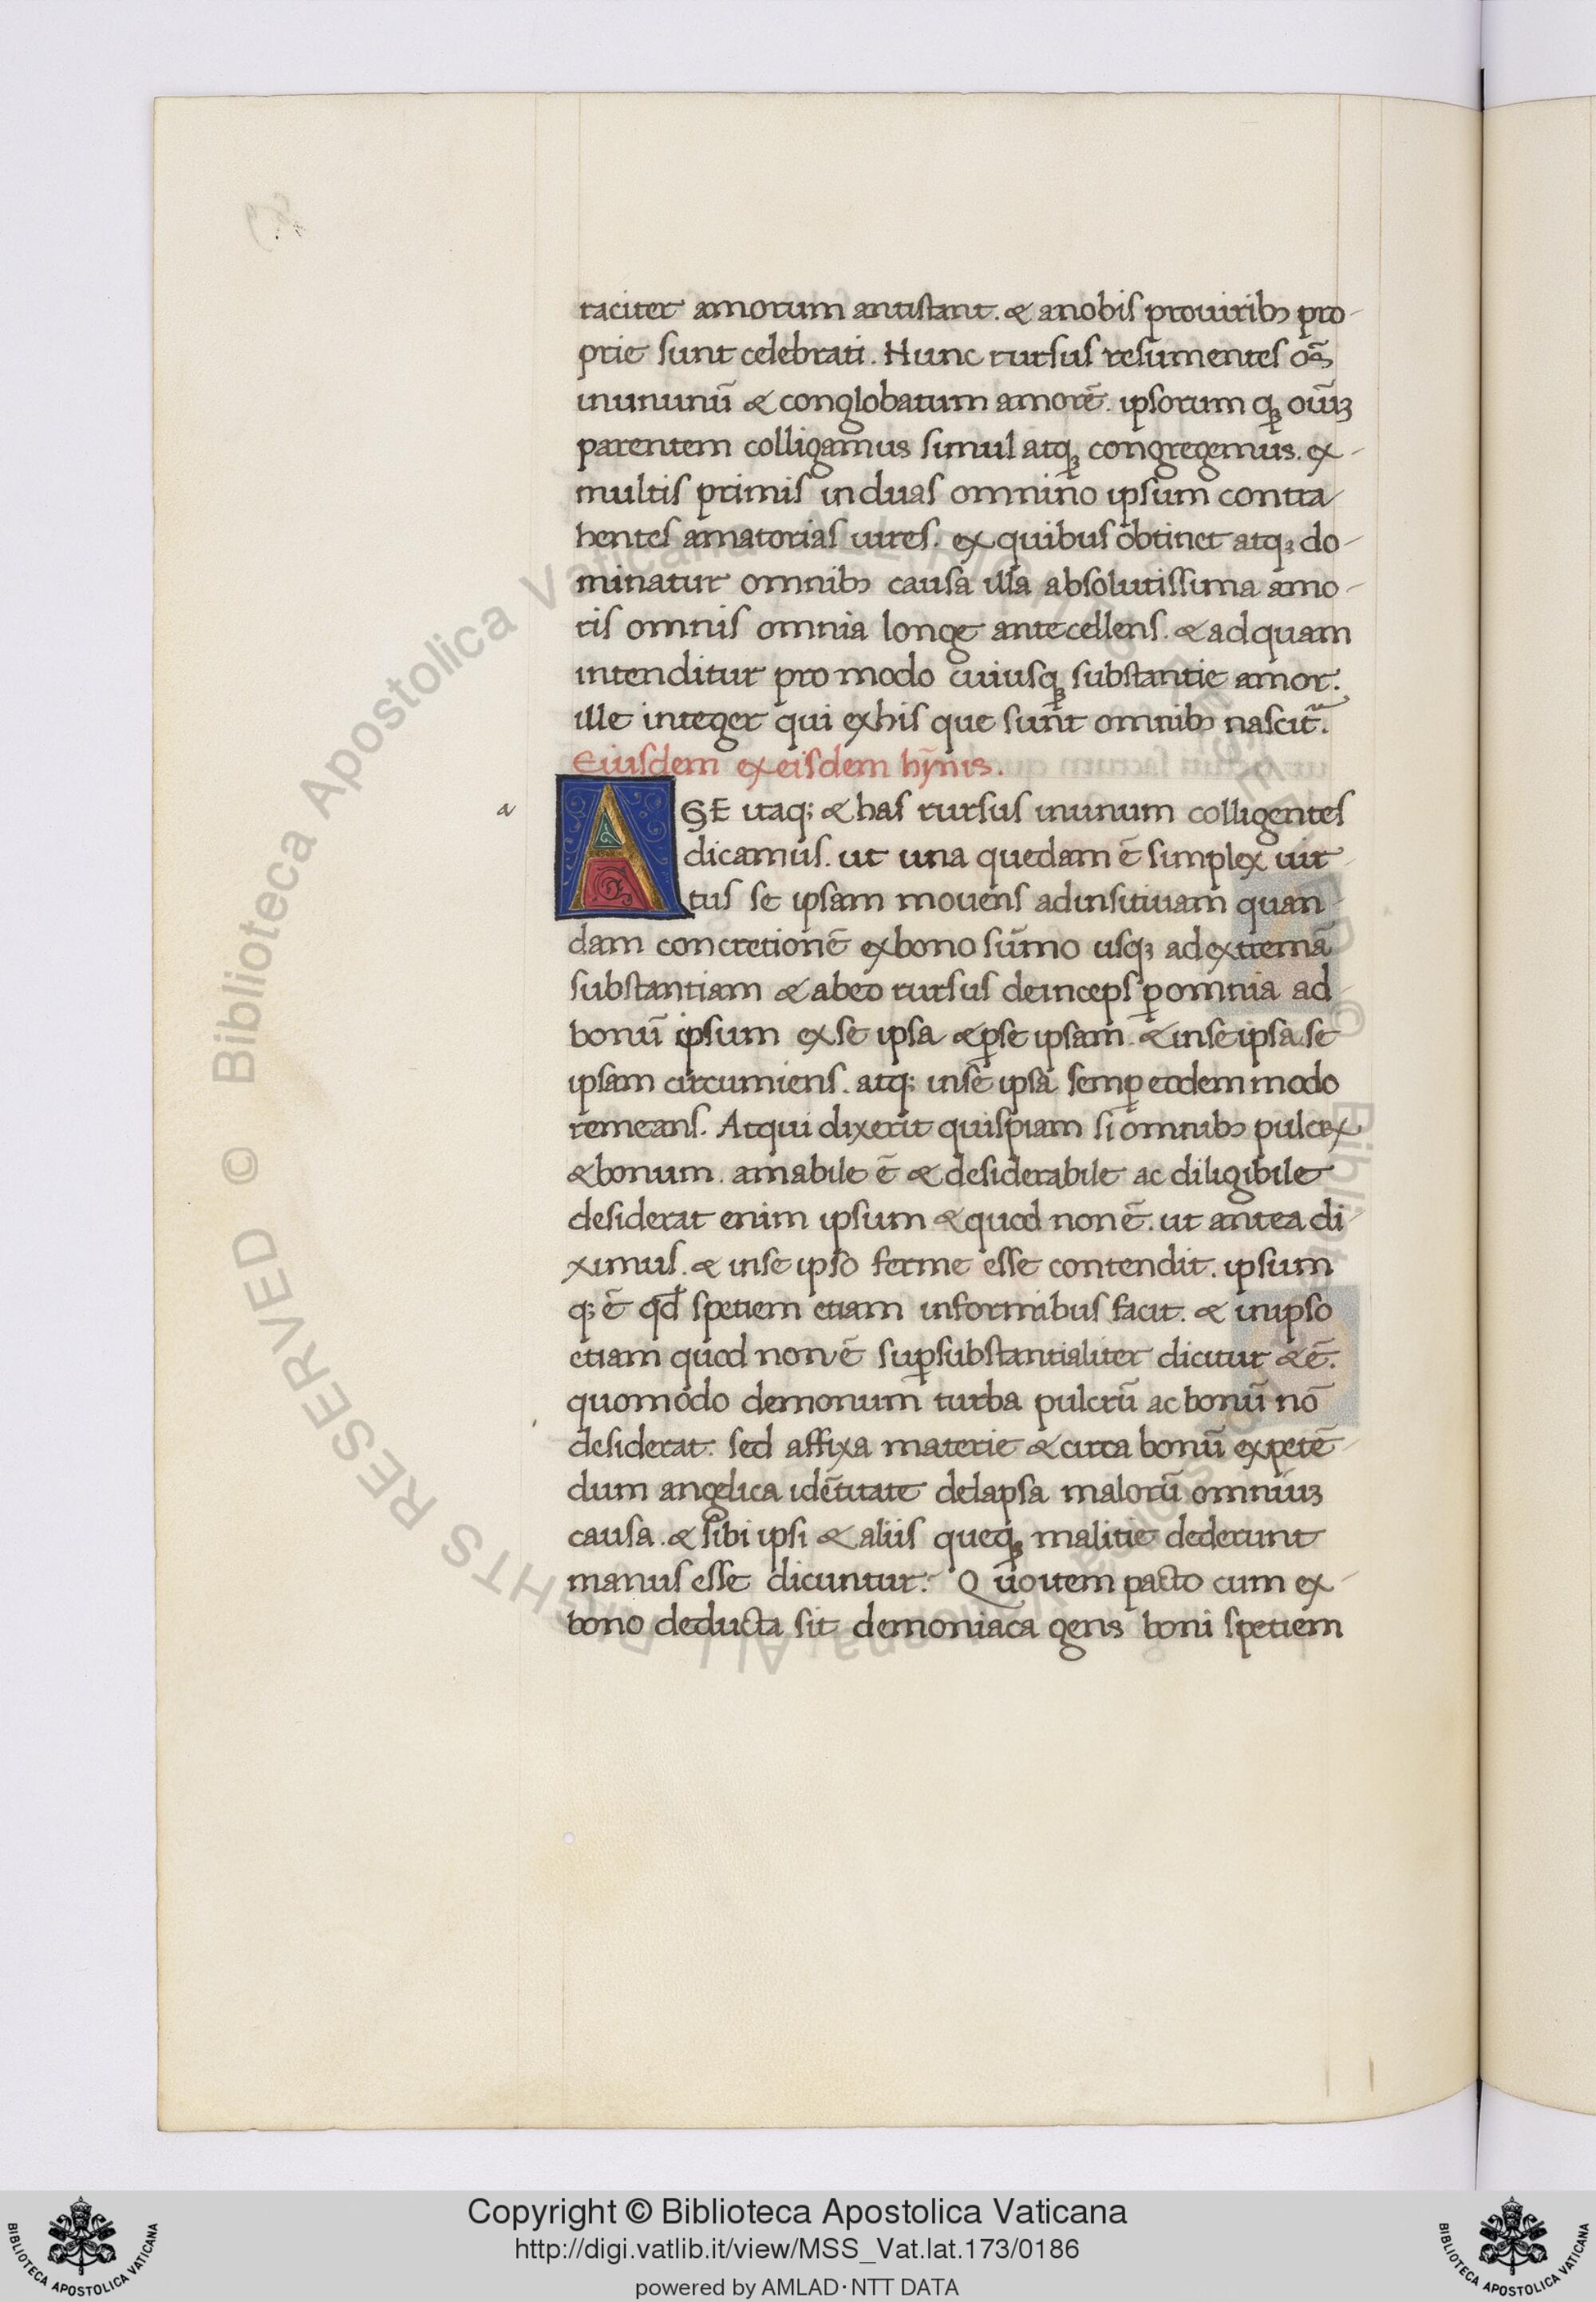 taciter amorum antistant. & anobis prouirib; pro-
prie sunt celebrati. Hunc rursus resumentes oẽs
inununũ & conglobatum amorẽ. ipsorum q; oiũ;
parentem colligamus simul atq; congregemus. ex-
multis primis induas omnino ipsum contra
hentes amatorias uires. exquibus obtinet atq; do-
minatur omnib; causa illa absolutissima amo-
ris omnis omnia longe antecellens. & adquam
intenditur pro modo cuiusq; substantie amor.
ille integer qui exhis que sunt omnib; nascit̃.
Eiusdem exeisdem hỹnis.
a
AGE itaq; & has rursus inunum colligentes
dicamus. ut una quedam ẽ simplex uir-
tus se ipsam mouens adinsitiuam quan-
dam concretionẽ exbono sũmo usq; adextremã
substantiam & abeo rursus deinceps ꝑomnia ad
bonũ ipsum exse ipsa & ꝑse ipsam. & inseipsa se
ipsam circumiens. atq; inse ipsã semꝑ eodem modo
remeans. Atqui dixerit quispiam si omnib; pulcrꝝ
& bonum. amabile ẽ & desiderabile ac diligibile
desiderat enim ipsum & quod non ẽ. ut antea di-
ximus. & inse ipso ferme esse contendit. ipsum
q; ẽ qđ spetiem etiam informibus facit. & inipso
etiam quod non ẽ suꝑsubstantialiter dicitur & ẽ.
quomodo demonum turba pulcrũ ac bonũ nõ
desiderat: sed affixa materie & circa bonũ expetẽ-
dum angelica idẽtitate delapsa malorũ omniu;
causa. & sibi ipsi & aliis queq; malitie dederunt
manus esse dicuntur. Quo item pacto cum ex-
bono deducta sit demoniaca gens boni spetiem
© Biblioteca Apostolica Vaticana
ALL RIGHTS RESERVED
Copyright © Biblioteca Apostolica Vaticana
http://digi.vatlib.it/view/MSS_Vat.lat.173/0186
powered by AMLAD·NTT DATA
BIBLIOTECA APOSTOLICA VATICANA
BIBLIOTECA APOSTOLICA VATICANA